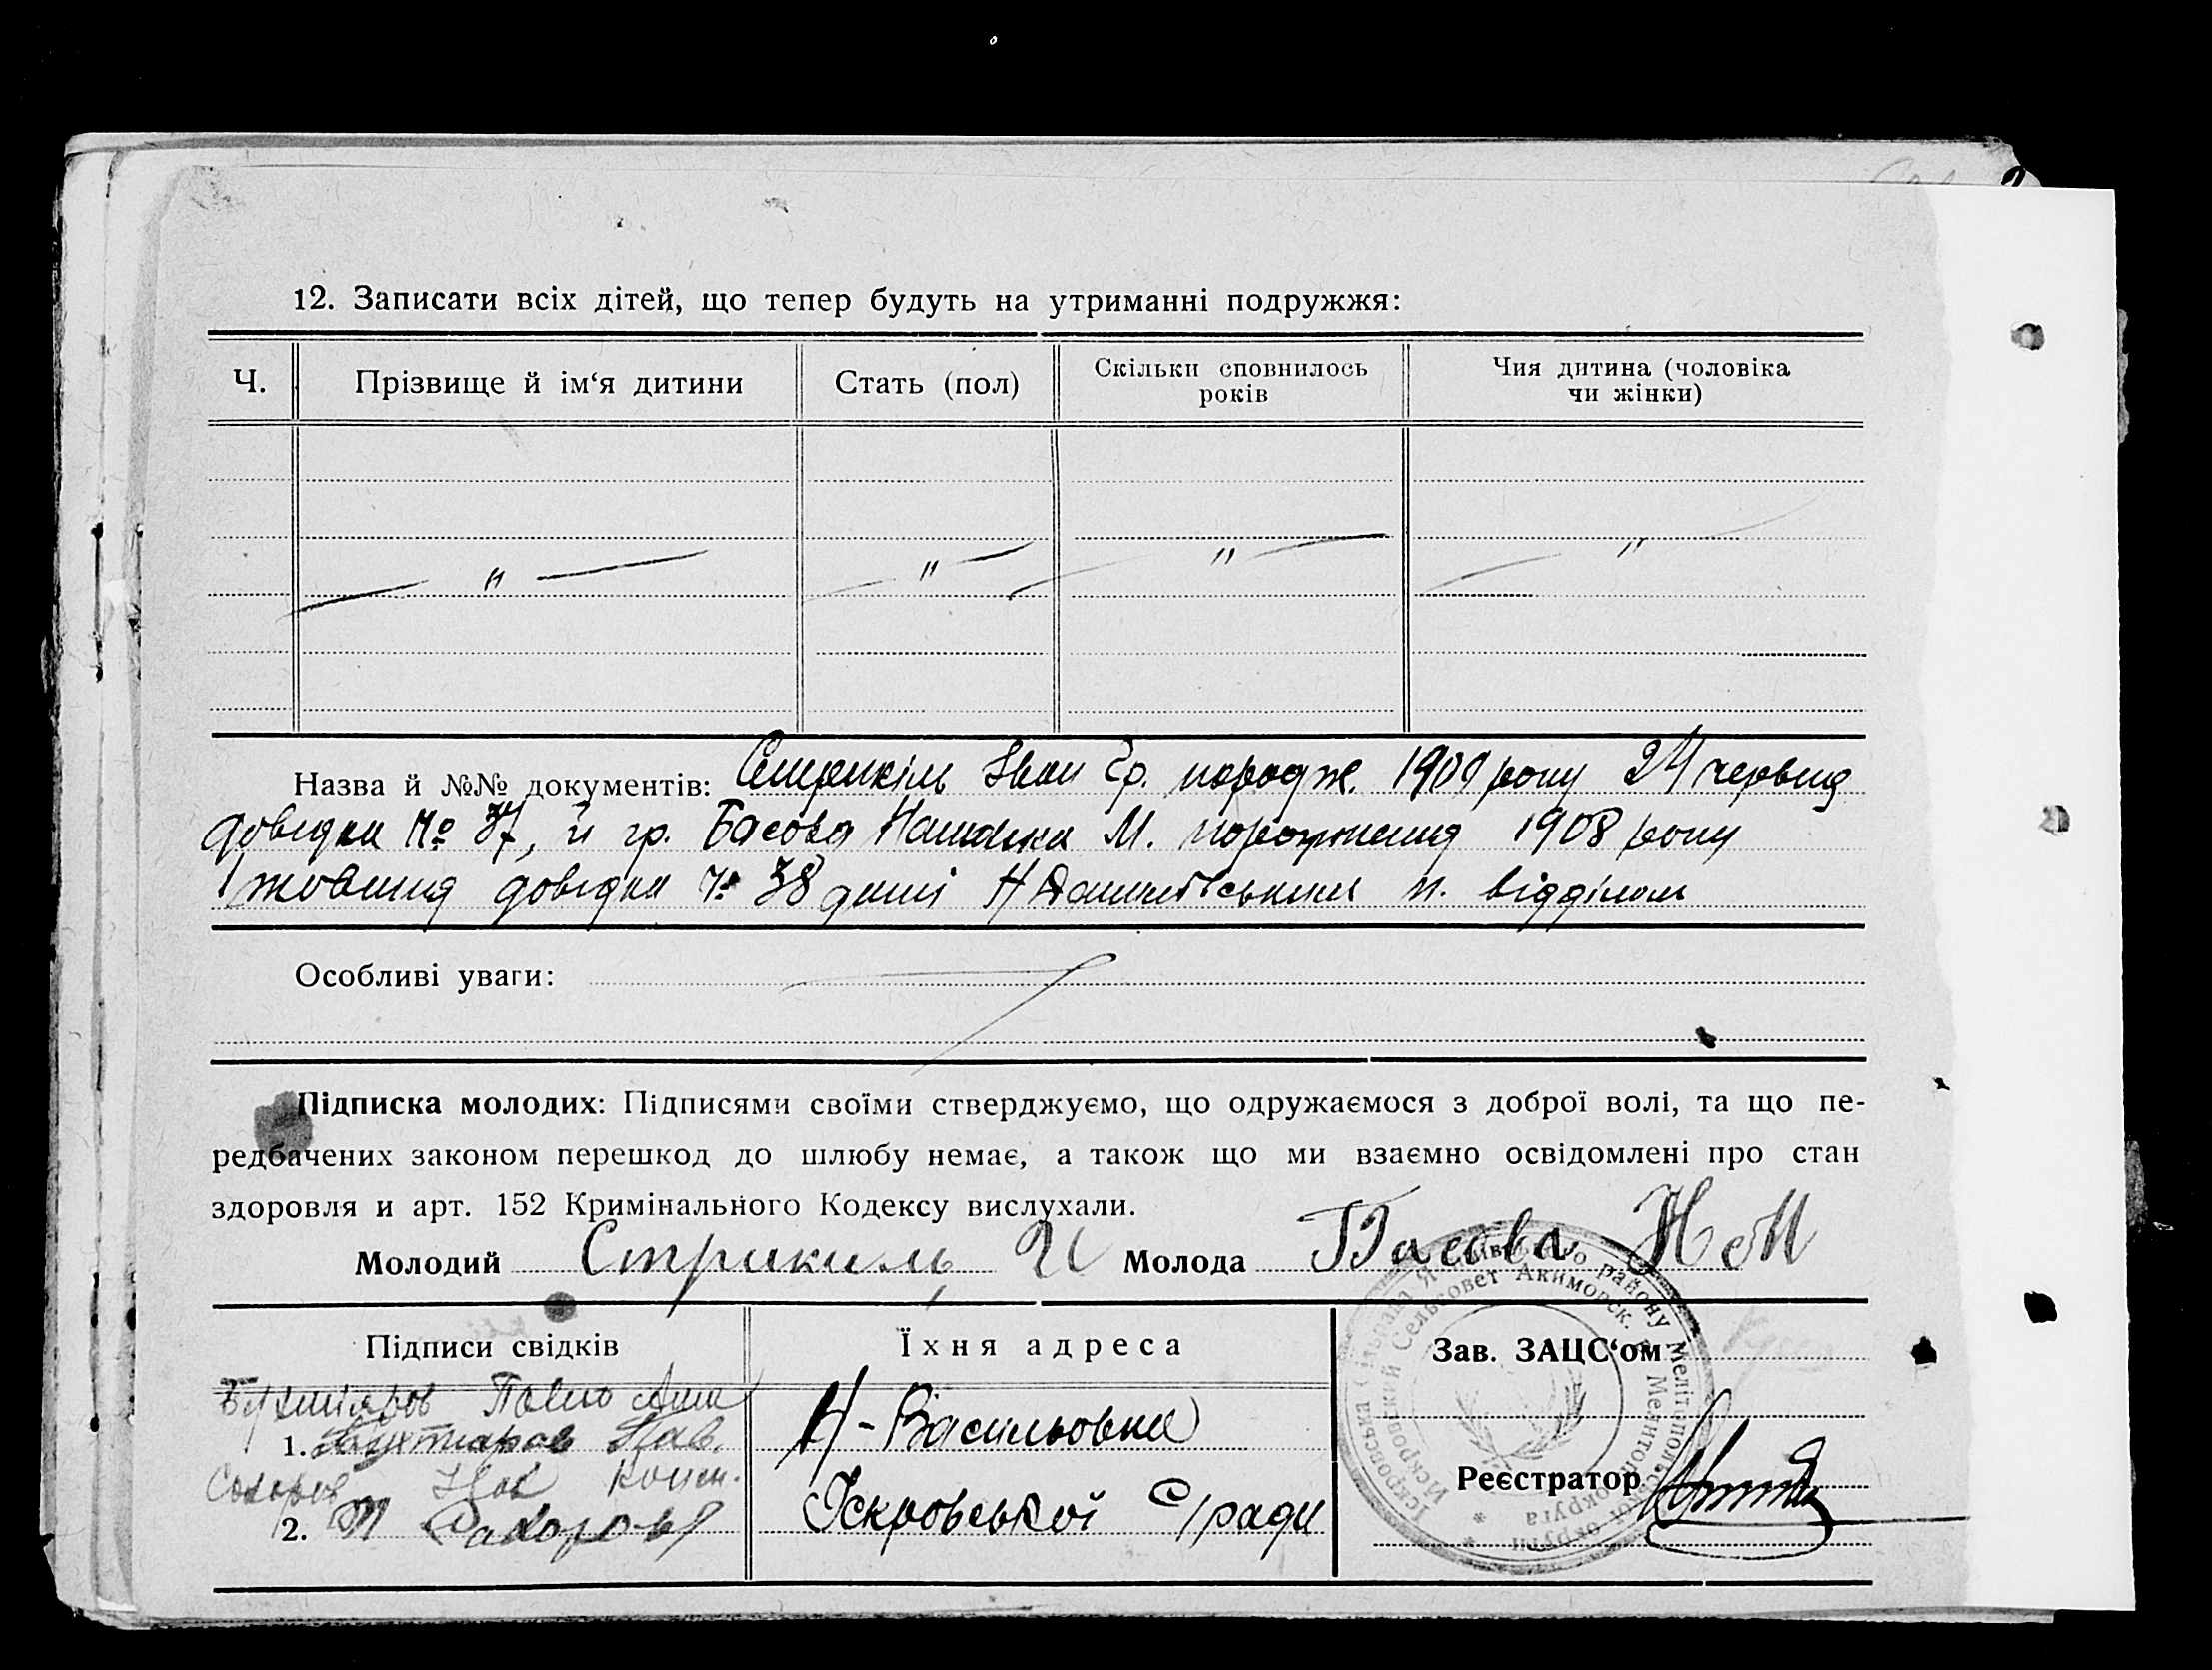 12. Записати всіх дітей, що тепер будуть на утриманні подружжя:
Ч. Прізвище й ім‘я дитини Стать (пол) Скільки сповнилось років Чия дитина (чоловіка чи жінки)
" " " "
Назва й №№ документів: Іван Гр. породж. 1909 року 24 червня
довідка № 37, й гр. Басова М. породження 1908 року
жовтня довідка № 38 дані відділом
Особливі уваги:
Підписка молодих: Підписями своїми стверджуємо, що одружаємося з доброї волі, та що пе-
редбачених законом перешкод до шлюбу немає, а також що ми взаємно освідомлені про стан
здоровля и арт. 152 Кримінального Кодексу вислухали.
Молодий Стрикиль И Молода Басова Н М
Підписи свідків Їхня адреса Зав. ЗАЦС‘ом
1. Бухтіаров Пав. Н-Васильовка
2. Іскровської С/ради
Реєстратор
Іскровська району Мелітопольської округи
Искровский Сельсовет Акиморск. Мелитопол округа